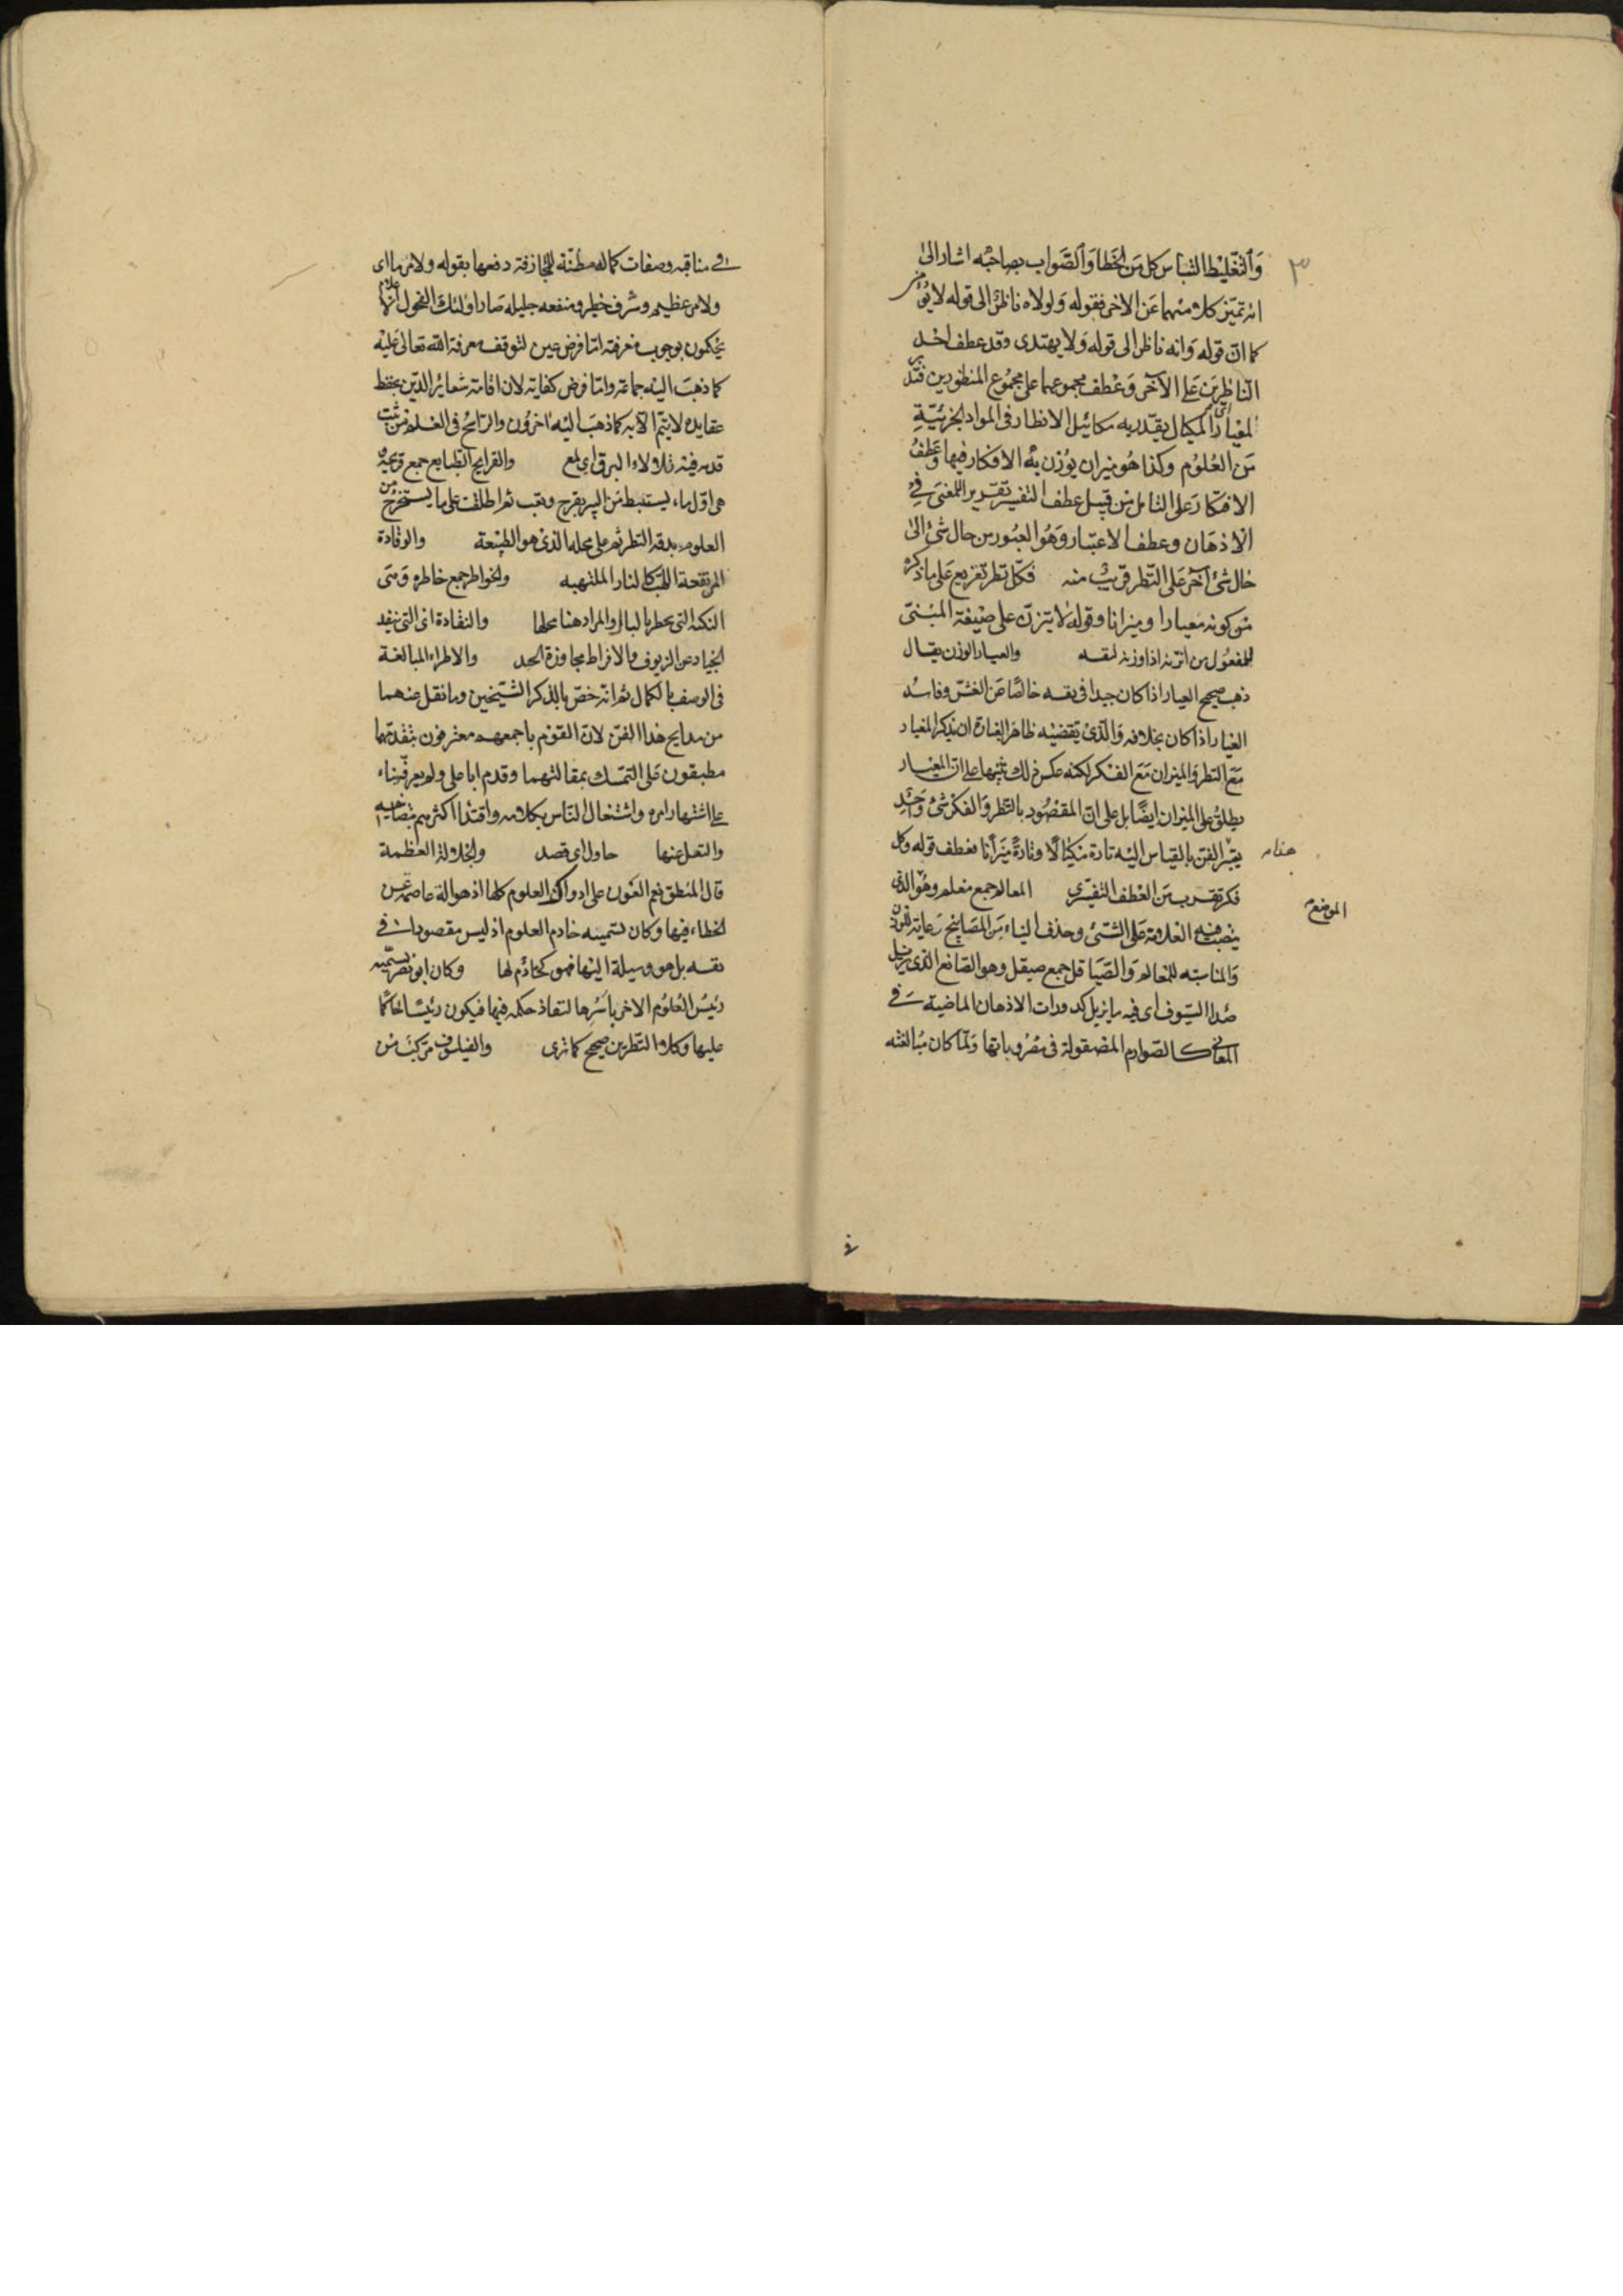 ٣
والتغليط التباس كل من الخطا والصواب بصاحبه اشار الى
انه تميز كلا منهما عن الاخر فقوله ولولاه ناظر الى قوله لا يؤمن
كما ان قوله وانه ناظر الى قوله ولا يهتدى وقد عطف احد
الناظرين على الآخر وعطف مجموعهما على مجموع المنظورين فتدبر
المعيار اى المكيال يقدر به مكائيل الانظار فى المواد الجزئية
من العلوم وكذا هو ميزان يوزن به الافكار فيها وعطف
الافكار على التامل من قبيل عطف التفسير تقرير للمعنى فى
الاذهان وعطف الاعتبار وهو العبور من حال شئ الى
حال شئ آخر على النظر قريب منه فكل نظر تفريع على ما ذكره
من كونه معيارا وميزانا وقوله لا يتزن على صيغة المبنى
للمفعول من اتزنه اذا وزنه لنفسه والعيار الوزن يقال
ذهب صحيح العيار اذا كان جيدا فى نفسه خالصا عن الغش وفاسد
العيار اذا كان بخلافه والذى يقتضيه ظاهر العبارة ان يذكر المعيار
مع النظر والميزان مع الفكر لكنه عكس ذلك تنبيها على ان المعيار
يطلق على الميزان ايضا بل على ان المقصود بالنظر والفكر شئ واحد
يعتبر الفن بالقياس اليه تارة مكيالا وتارة ميزانا فعطف قوله وكل
هنا
فكر تقريب من العطف التفسيرى المعالم جمع معلم وهو الذى
الموضع
ينصب فيه العلامة على الشئ وحذف الياء من المصابيح رعاية للوزن
والمناسبة للمعالم والصياقل جمع صيقل وهو الصانع الذى يزيل
صدا السيوف اى فيه ما يزيل كدورات الاذهان الماضية فى
المعانى كالصوارم المصقولة فى مضروباتها ولما كان مبالغته
فى مناقبه وصفات كماله مظنة للمجازفة دفعها بقوله ولامر ما اى
ولامر عظيم وشرف خطير ومنفعه جليله صار اولئك الفحول اعلام
يحكمون بوجوب معرفته اما فرض عين لتوقف معرفة الله تعالى عليه
كما ذهب اليه جماعة واما فرض كفاية لان اقامة شعائر الدين بحفظ
عقايده لا يتم الا به كما ذهب اليه آخرون والراسخ فى العلم من ثبت
قدمه فيه تلالاء البرق اى لمع والقرايح الطبايع جمع قريحة
هى اول ماء يستنبط من البير بقرح وتعب ثم اطلقت على ما يستخرج من
العلوم بدقة النظر ثم على محله الذى هو الطبيعة والوقادة
المرتفعة اللهب كالنار الملتهبه والخواطر جمع خاطره وهى
النكتة التى يخطر بالبال والمراد هنا محلها والنقادة اى التى تنقد
الجياد عن الزيوف والافراط مجاوزة الحد والاطراء المبالغة
فى الوصف بالكمال ثم انه خص بالذكر الشيخين وما نقل عنهما
من مدايح هذا الفن لان القوم باجمعهم معترفون بتقدمهما
مطبقون على التمسك بمقالتهما وقدم ابا على ولم يعرفه بناء
على اشتهار امره واشتغال الناس بكلامه واقتدا اكثرهم بتصانيفه
والنقل عنها حاول اى قصد والجلالة العظمة
قال المنطق نعم العون على ادراك العلوم كلها اذ هو الة عاصمة عن
الخطاء فيها وكان تسميته خادم العلوم اذ ليس مقصودا فى
نفسه بل هو وسيلة اليها فهو كخادم لها وكان ابو نصر يسميه
رئيس العلوم الاخر باسرها لنفاذ حكمه فيها فيكون رئيسا حاكما
عليها وكلا النظرين صحيح كما ترى والفيلسوف مركب من